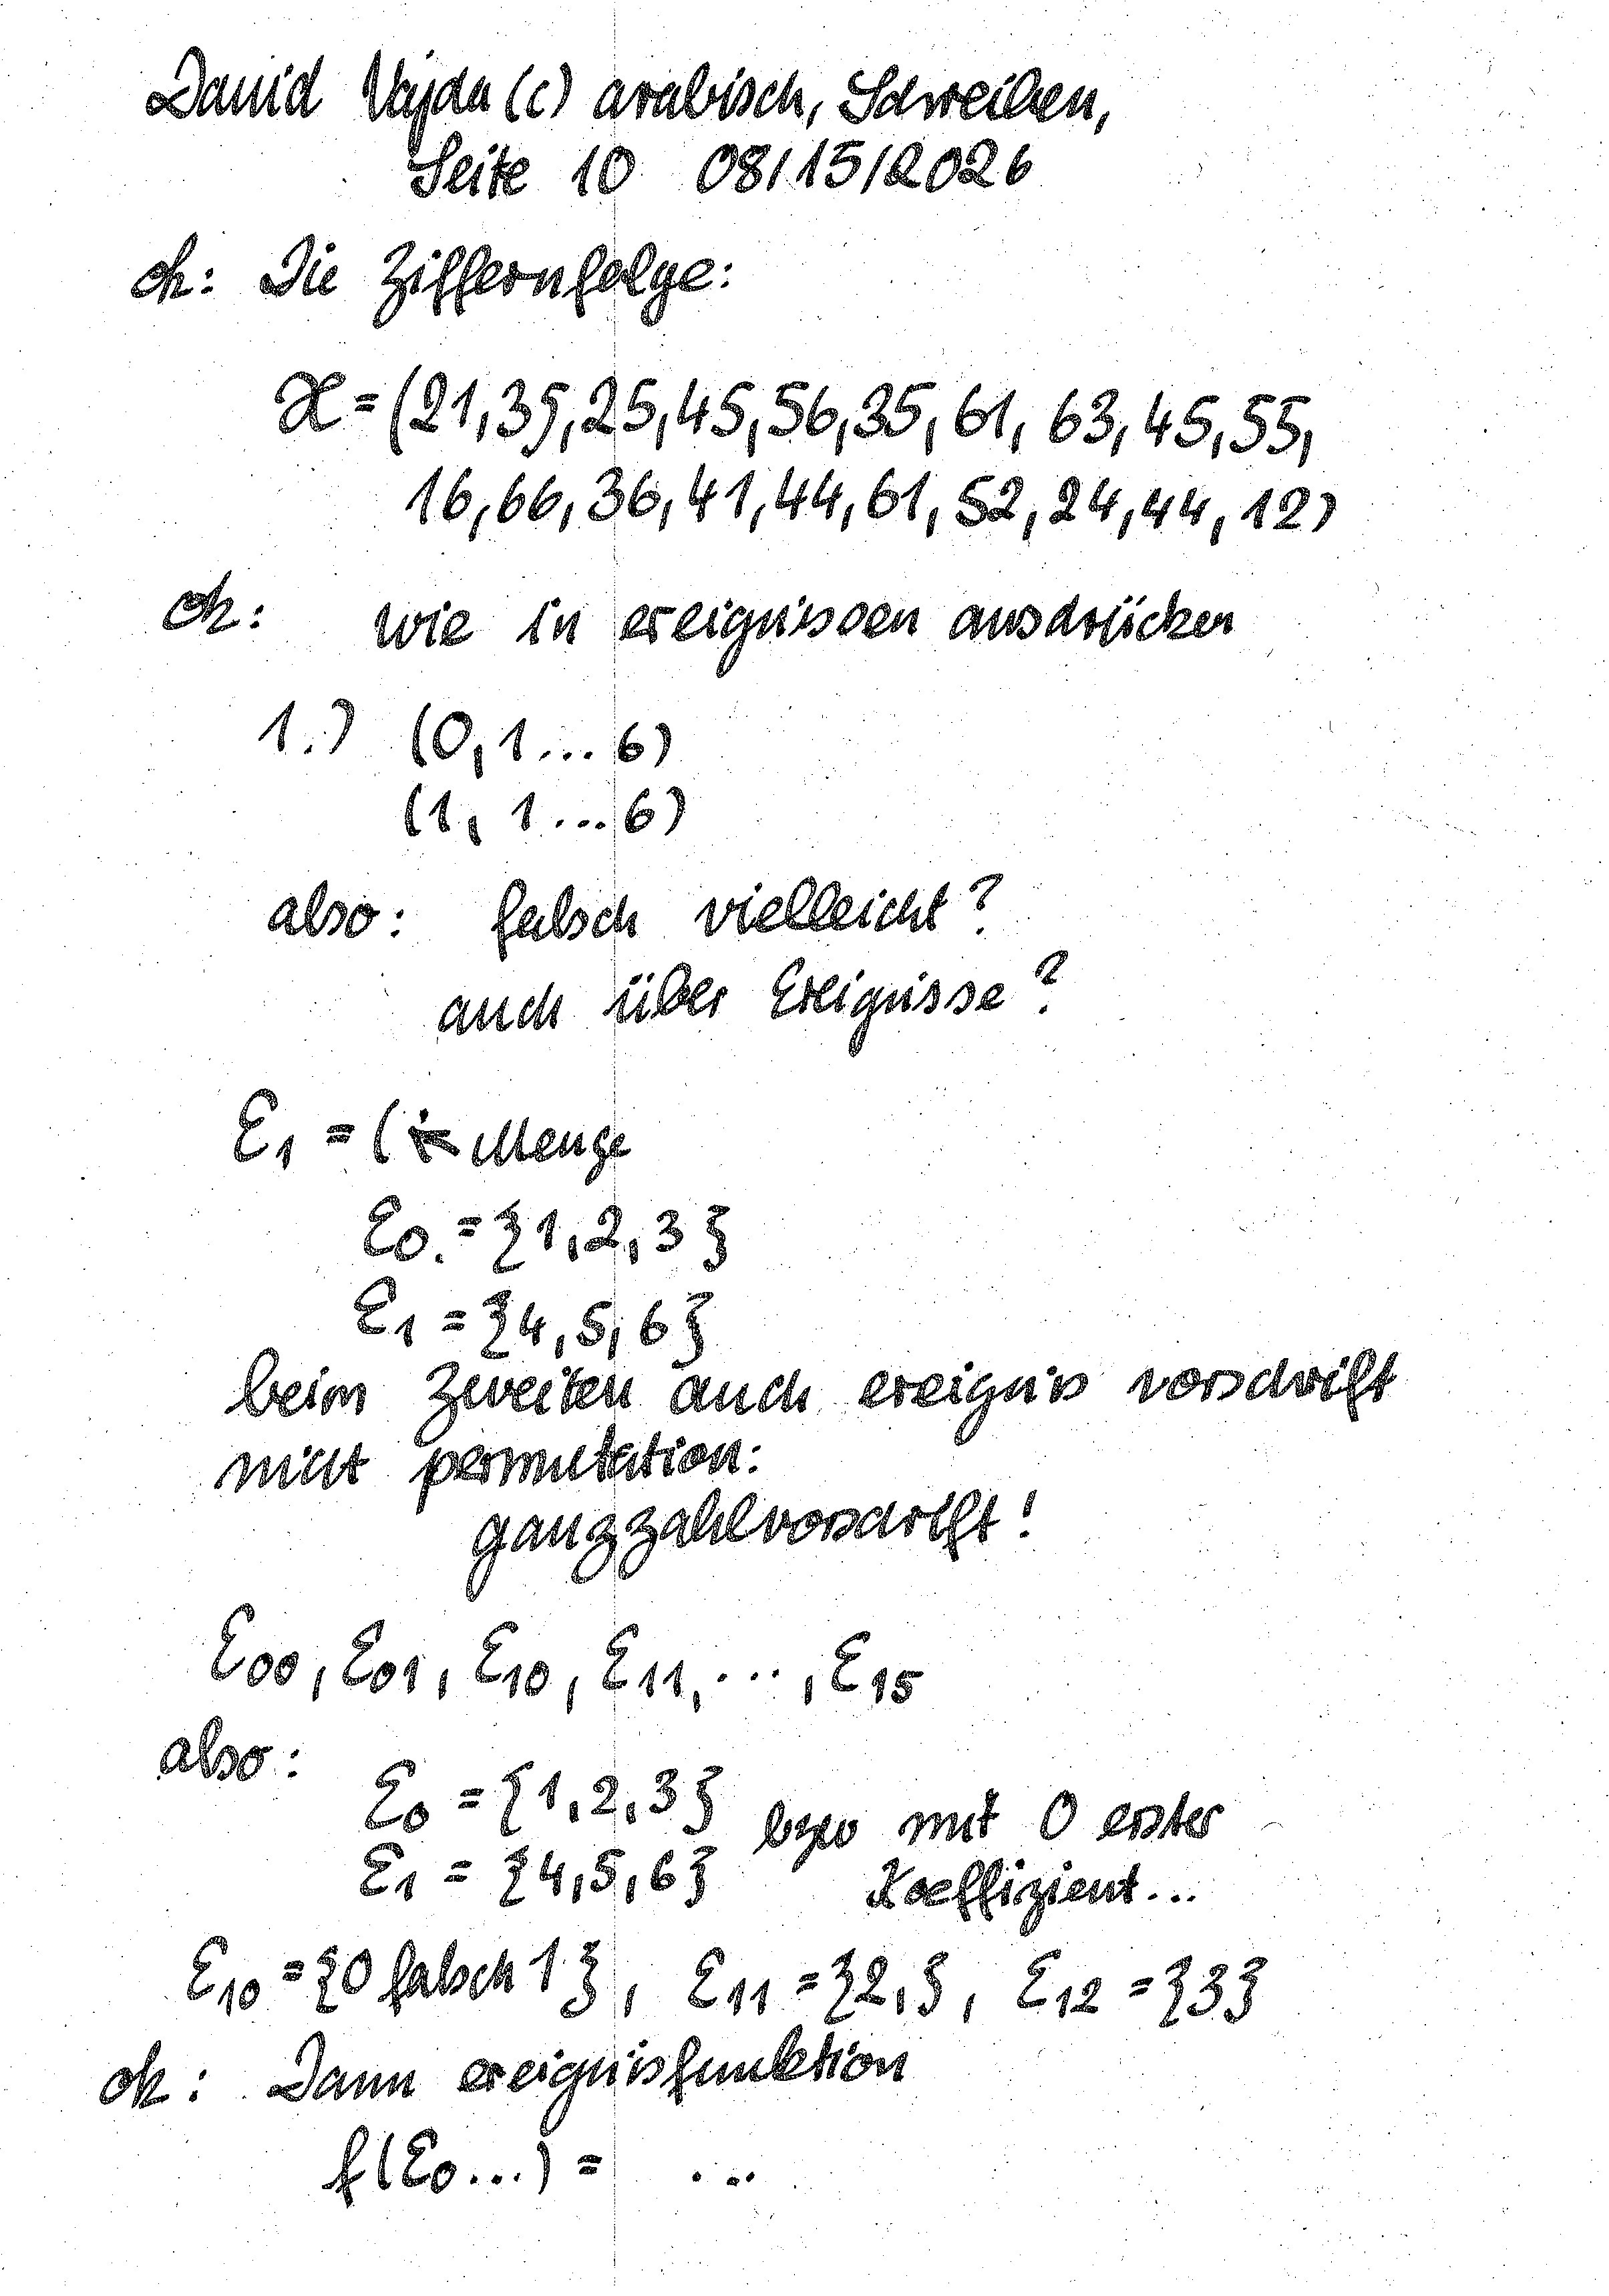 David Vajda (c) arabisch, Schreiben,
Seite 10 08/15/2026
ok: Die Ziffernfolge:
X = (21,35,25,45,56,35,61, 63,45,55,
16,66,36,41,44,61,52,24,44,12)
ok: wie in ereignissen ausdrücken
1.) (0,1...6)
(1, 1...6)
also: falsch vielleicht?
auch über Ereignisse?
E1 = ( Menge
E0 = {1,2,3}
E1 = {4,5,6}
beim zweiten auch ereignis vorschrift
nicht permutation:
ganzzahlvorschrift!
E00, E01, E10, E11, ..., E15
also:
E0 = {1,2,3} bzw mit 0 erster
E1 = {4,5,6} Koeffizient...
E10 = {0 falsch 1}, E11 = {2,}, E12 = {3}
ok: Dann ereignisfunktion
f(E0...) = ...